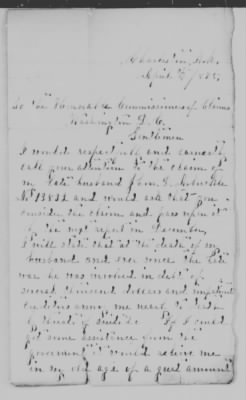 April 1875
To the Honorable Commissioners of Claims
Washington D. C.
Gentlemen
I would respectfully and earnestly
call your attention to the claim of
my late husband
No 13822 and would ask that you
consider the claim and pass upon it
in the next report in December,
I will state that at the death of my
husband and ever since the late
war he was involved in debt of
several thousand dollars and
creditors annoy me
by threats of suits &c If I could
get some assistance from the
government it would relieve me
in my old age of a great amount